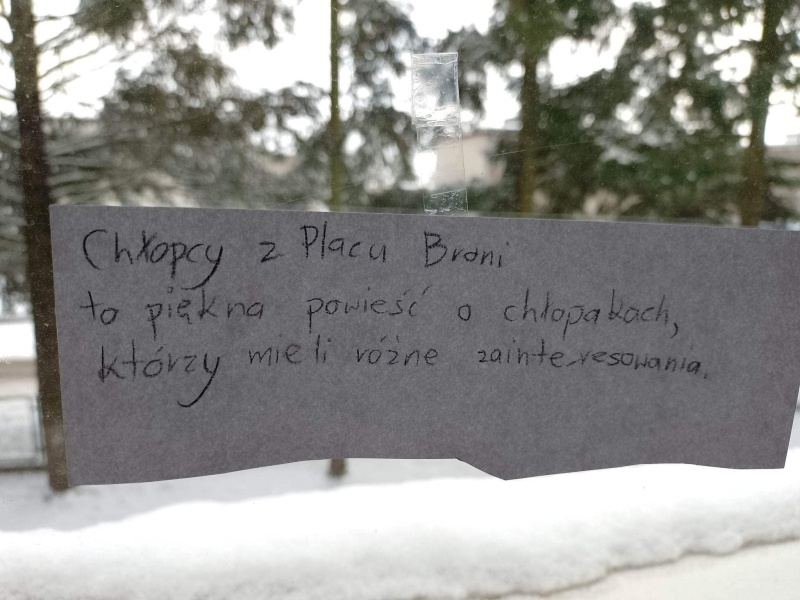 Chłopcy z Placu Broni
to piękna powieść o chłopakach,
którzy mieli różne zainteresowania.